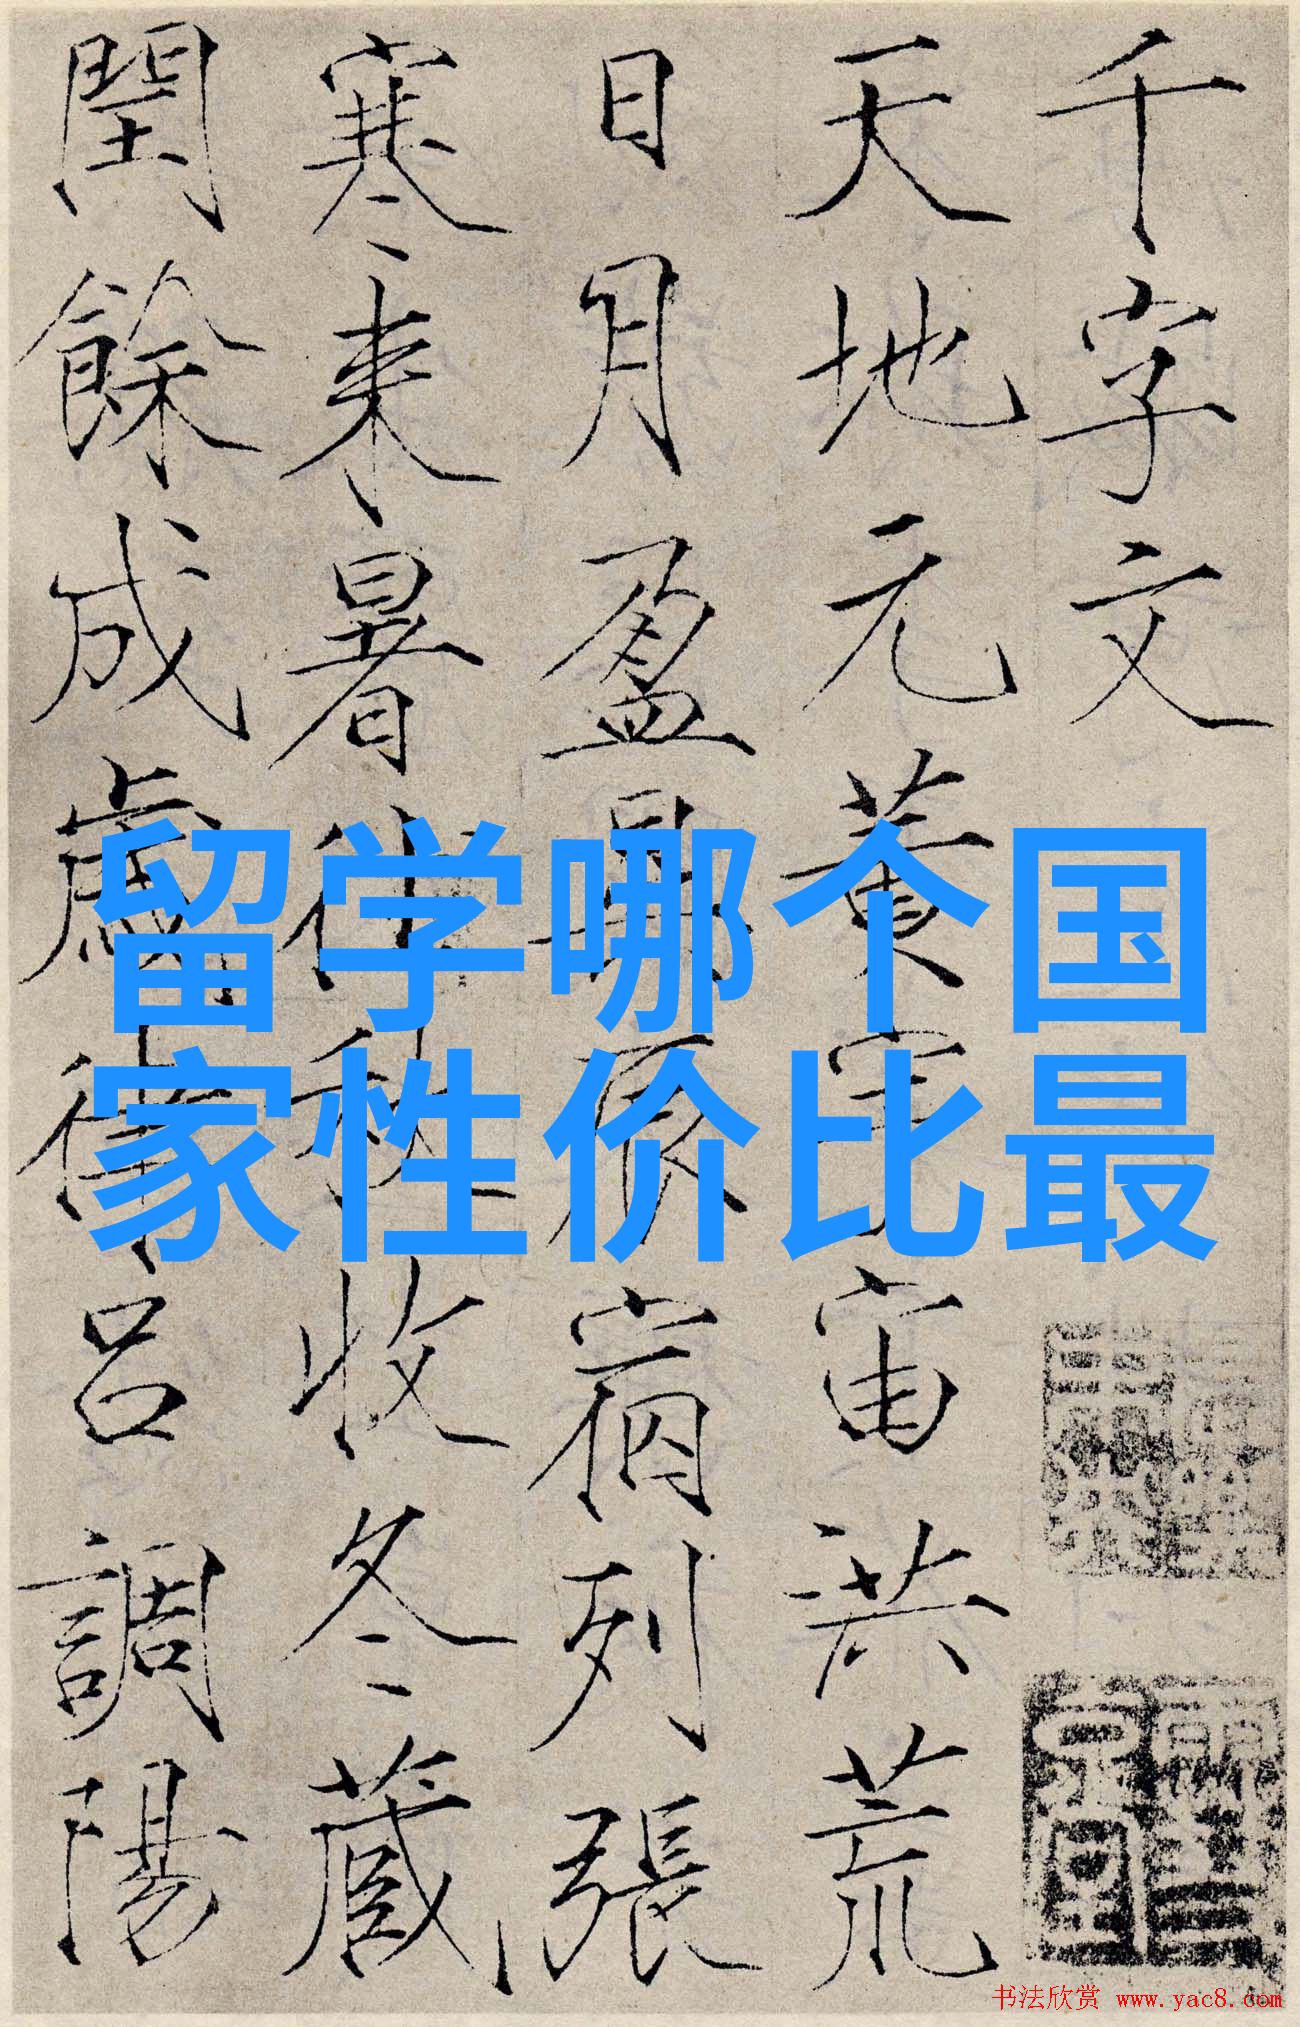 千字文
天地元黄宇宙洪荒
日月盈昃辰宿列張
寒来暑往秋收冬蔵
閏餘成歳律吕調陽
留学哪个国
家性价比最
书法欣赏 www.yac8.com